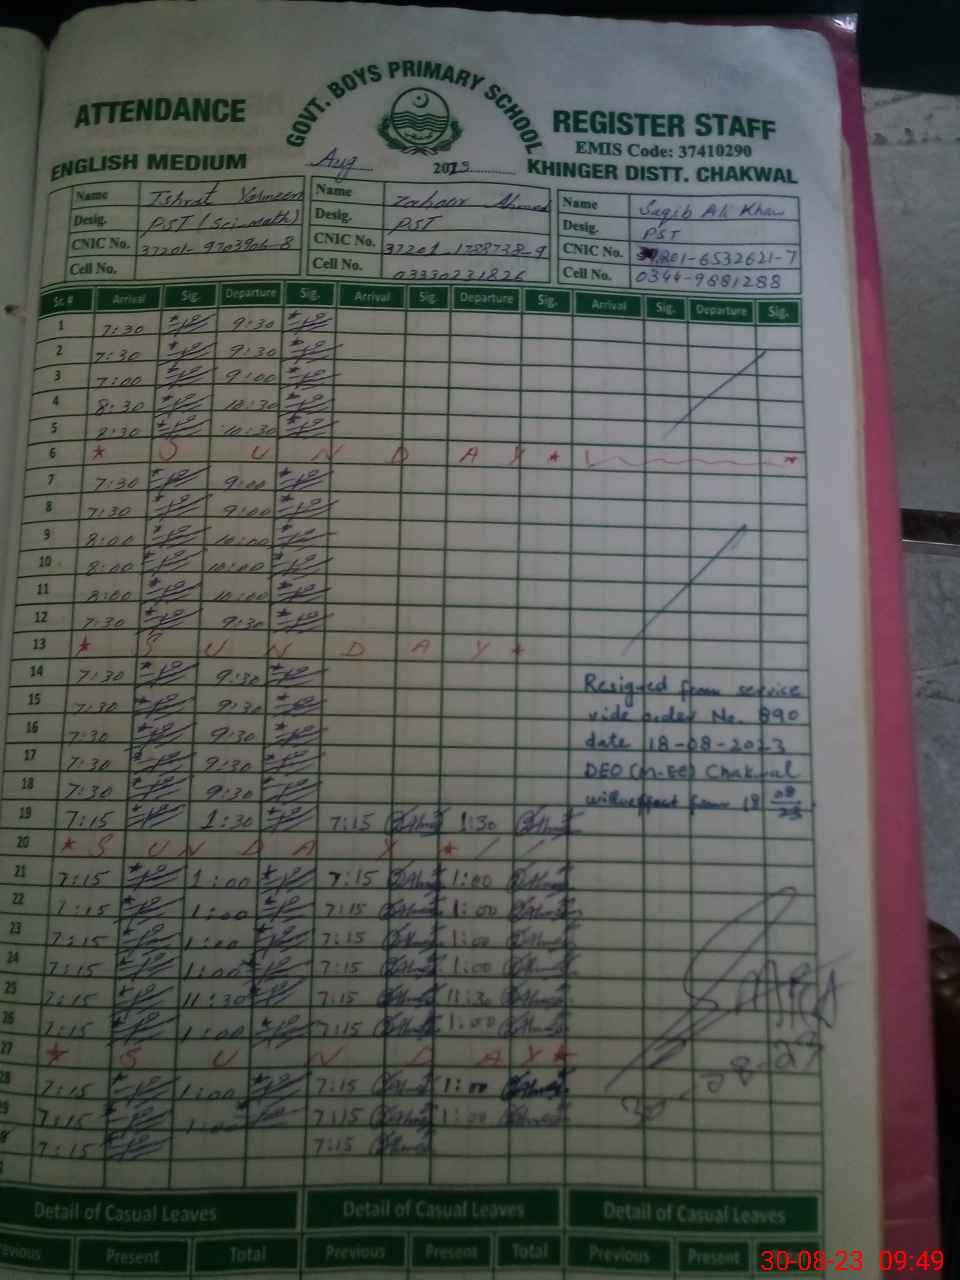 GOVT. BOYS PRIMARY SCHOOL
ATTENDANCE REGISTER STAFF
EMIS Code: 37410290
ENGLISH MEDIUM Aug 2023 KHINGER DISTT. CHAKWAL
Name Ishrat Yasmeen Name Zahoor Ahmed Name Saqib Ali Khan
Desig. PST (Sci-math) Desig. PST Desig. PST
CNIC No. 37201-9703906-8 CNIC No. 37201-1788738-9 CNIC No. 37201-6532621-7
Cell No. Cell No. 03330231826 Cell No. 0344-9681288
Sr. # Arrival Sig. Departure Sig. Arrival Sig. Departure Sig. Arrival Sig. Departure Sig.
1 7:30 9:30
2 7:30 9:30
3 7:00 9:00
4 8:30 10:30
5 8:30 10:30
6 * S U N D A Y * *
7 7:30 9:00
8 7:30 9:00
9 8:00 10:00
10 8:00 10:00
11 8:00 10:00
12 7:30 9:30
13 * S U N D A Y *
14 7:30 9:30
Resigned from service
15 7:30 9:30
vide order No. 890
16 7:30 9:30
date 18-08-2023
17 7:30 9:30
DEO (M-EE) Chakwal
18 7:30 9:30
will effect from 18 08 23
19 7:15 1:30 7:15 1:30
20 * S U N D A Y *
21 7:15 1:00 7:15 1:00
22 7:15 1:00 7:15 1:00
23 7:15 1:00 7:15 1:00
24 7:15 1:00 7:15 1:00
25 7:15 11:30 7:15 11:30
26 7:15 1:00 7:15 1:00
27 * S U N D A Y *
28 7:15 1:00 7:15 1:00
7:15 1:00 7:15 1:00
7:15 7:15
Detail of Casual Leaves Detail of Casual Leaves Detail of Casual Leaves
Present Total Previous Present Total Previous Present
30-08-23 09:49